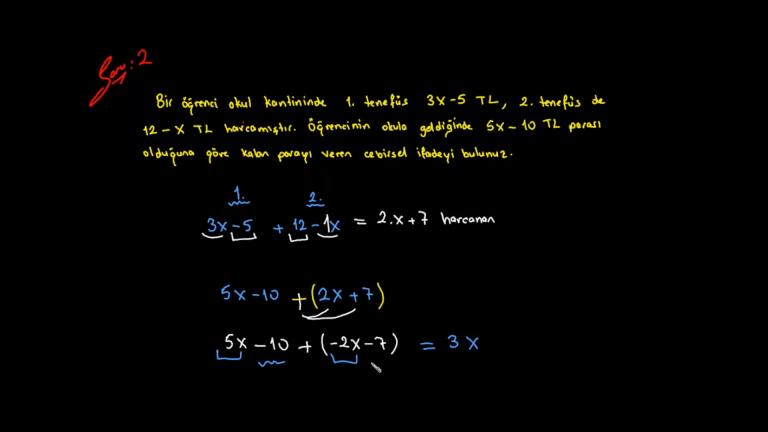 Soru: 2
Bir öğrenci okul kantininde 1. tenefüs 3x-5 TL, 2. tenefüs de
12-x TL harcamıştır. Öğrencinin okula geldiğinde 5x-10 TL parası
olduğuna göre kalan parayı veren cebirsel ifadeyi bulunuz.
1. 2.
3x-5 + 12-1x = 2.x+7 harcanan
5x-10 +(2x+7)
5x-10 + (-2x-7) = 3x